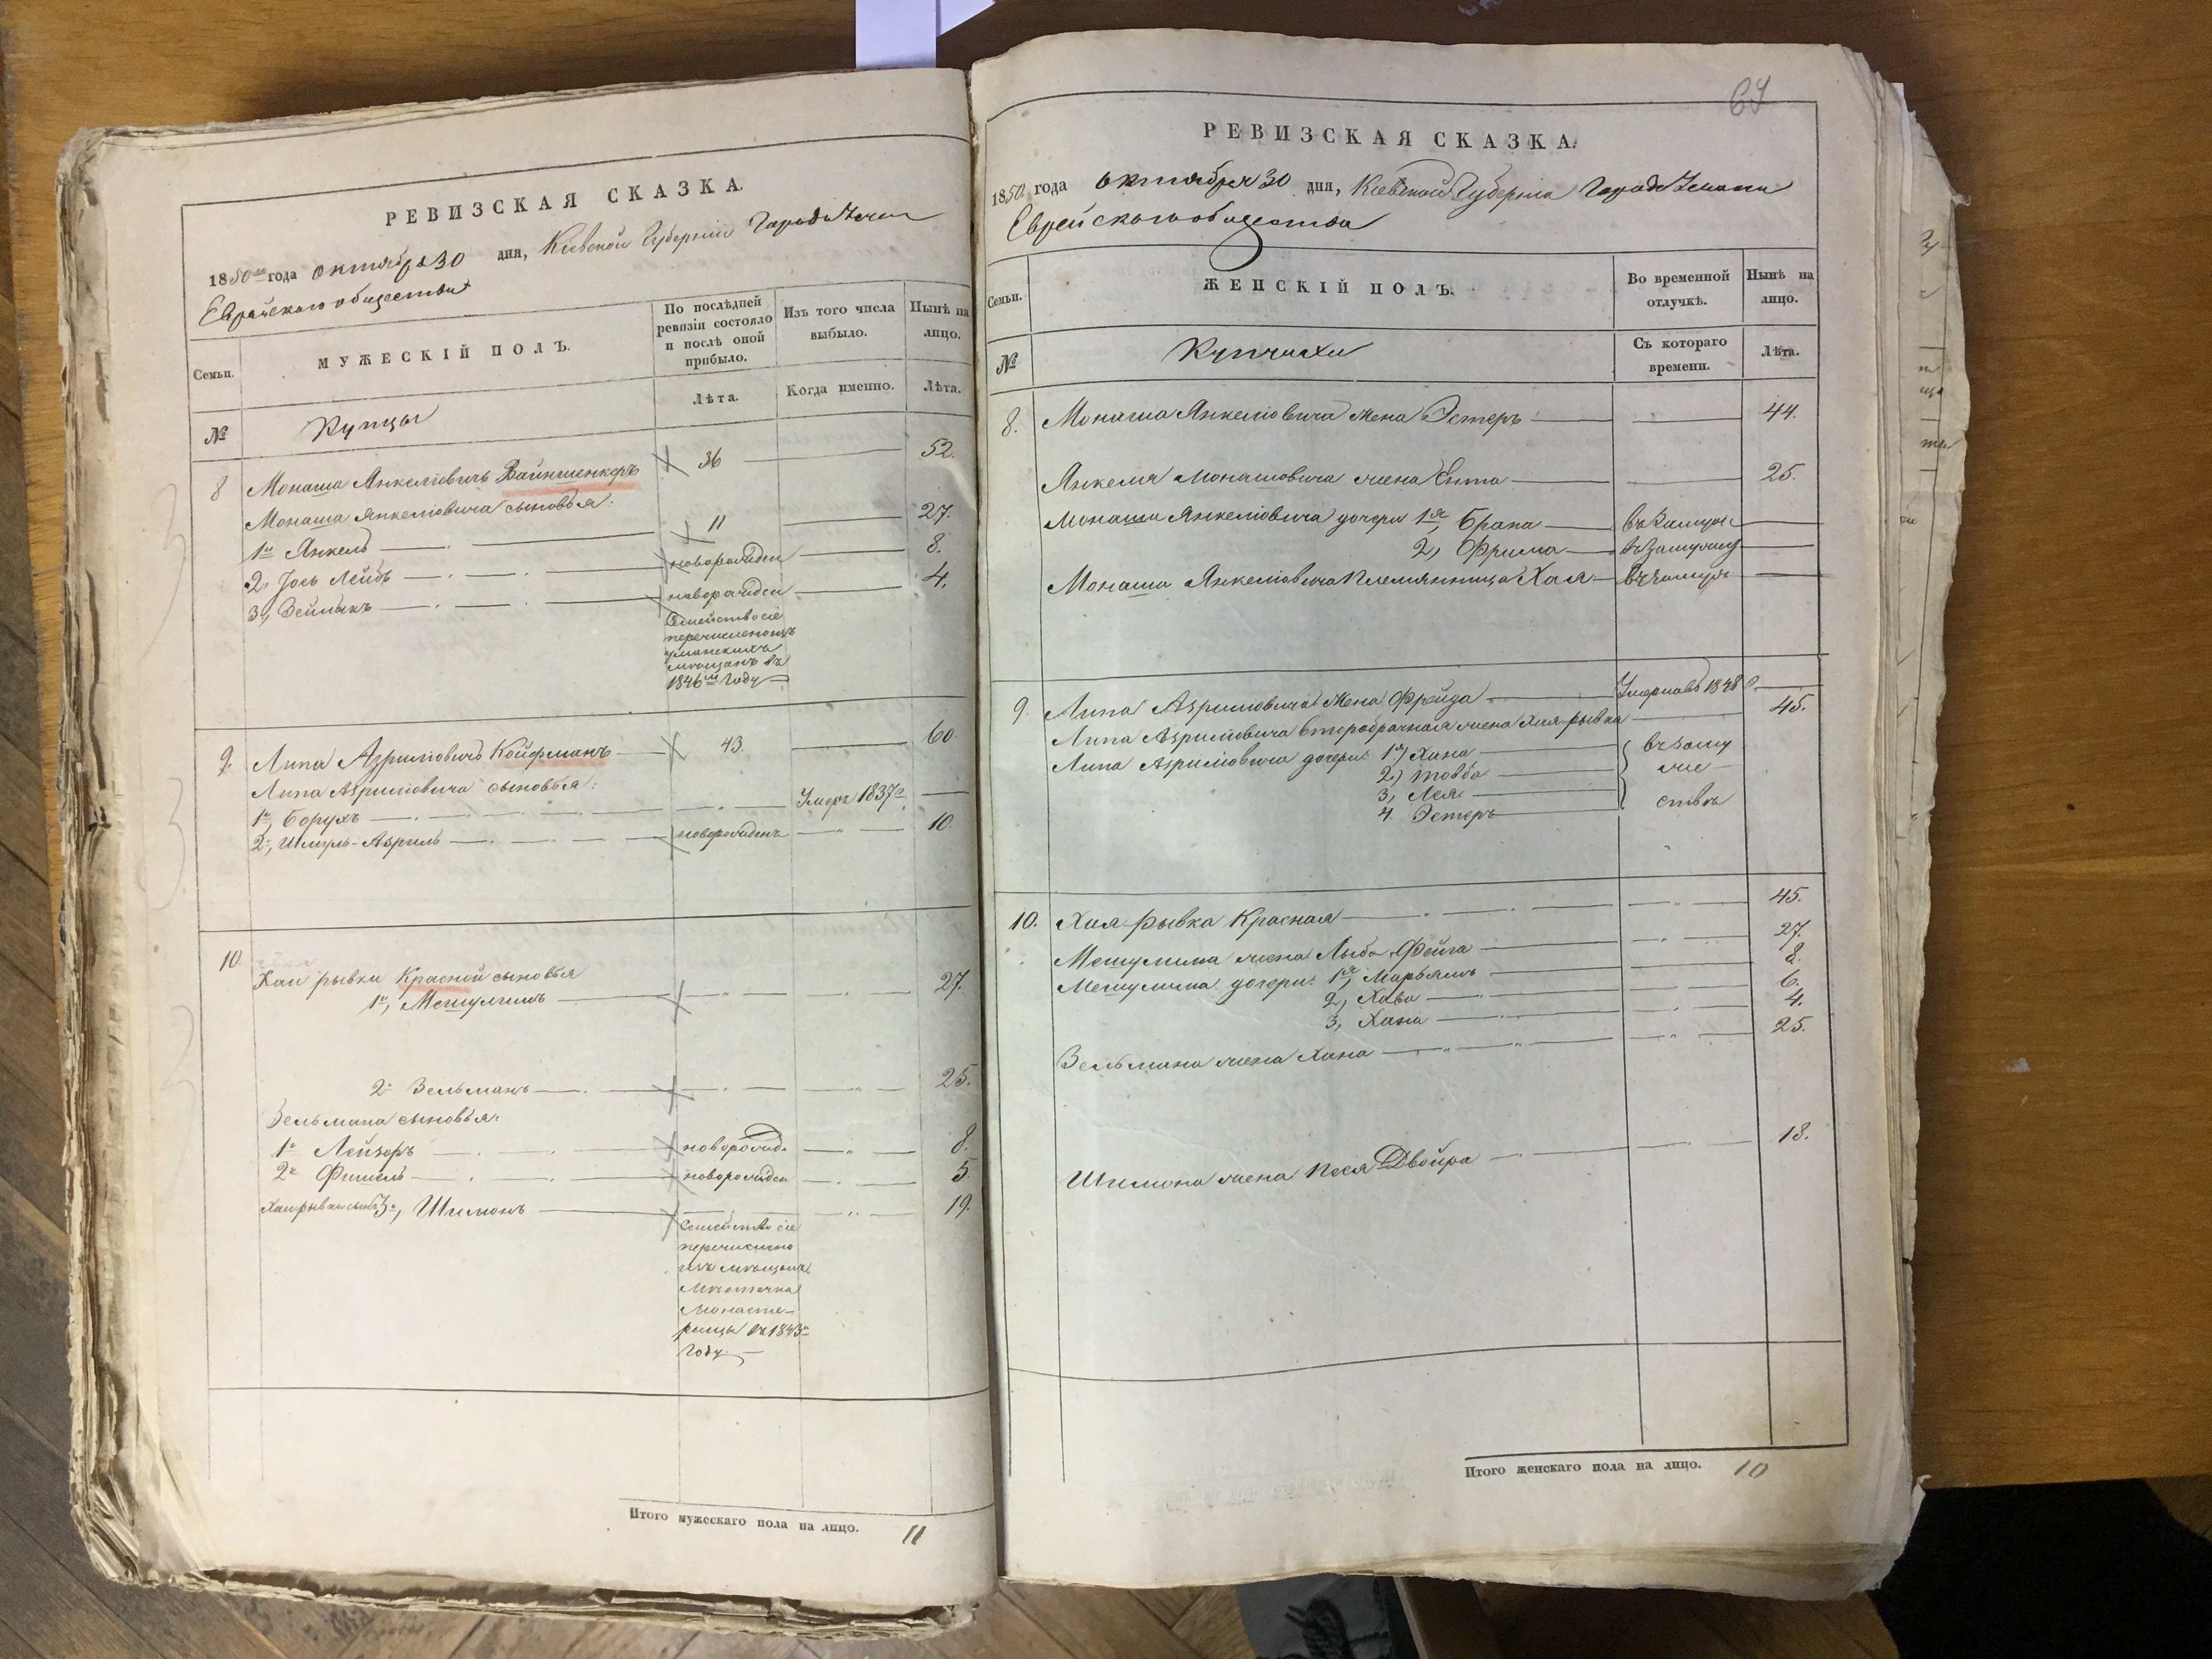 РЕВИЗСКАЯ СКАЗКА.
1850го года октября 30 дня, Киевской Губернии Города
Еврейского общества
Семьи.
МУЖЕСКІЙ ПОЛЪ.
По послѣдней ревизіи состояло и послѣ оной прибыло.
Изъ того числа выбыло.
Нынѣ на лицо.
№
Купцы
Лѣта.
Когда именно.
Лѣта.
8 Монаша Янкеліовичъ Вайншенкеръ 36 52.
Монаша Янкеліовича сыновья:
1й Янкель 11 27.
2, Іось Лейбъ новорожден 8.
3, Зейликъ новорожден 4.
Семейство сіе
перечислено изъ
уманскихъ
мѣщанъ въ
1846м Году
9. Липа Азриліовичъ Койфманъ 43. 60.
Липа Азриліовича сыновья:
1й, Борухъ Умеръ 1837г.
2й, Шмуль-Азриль новорожденъ 10.
10. Хаи рывки Красной сыновья
1й, Мешулимъ 27.
2й Зельманъ 25.
Зельмана сыновья:
1й Лейзоръ новорожд. 8.
2й Фишель новорожден 5.
Хаи рывки сынъ 3й, Шимонъ 19.
Семейство сіе
перечислено
изъ мѣщанъ
Мѣстечка
Монасте-
рища въ 1843м
Году
Итого мужескаго пола на лицо. 11
64
РЕВИЗСКАЯ СКАЗКА.
1850 года октября 30 дня, Киевской Губерніи Города Умани
Еврейского общества
Семьи.
ЖЕНСКІЙ ПОЛЪ.
Во временной отлучкѣ.
Нынѣ на лицо.
№
Купчихи
Съ котораго времени.
Лѣта.
8. Монаша Янкеліовича жена Эстеръ 44.
Янкеля Монашовича жена Ента 25.
Монаша Янкеліовича дочери 1я, Брана въ замуж:
2, Фрима въ замужест
Монаша Янкеліовича племянница Хая въ замуж
9. Липа Азриліовича жена Фрейда Умерла въ 1848 г.
Липа Азриліовича второбрачная жена Хая рывка 45.
Липа Азриліовича дочери: 1я) Хана въ заму
2) Товба же-
3, Лея
4 Эстеръ ствѣ
10. Хая рывка Красная 45.
Мешулима жена Лыба Фейга 27.
Мешулима дочери: 1я, Марьямъ 8.
2, Хава 6.
3, Хана 4.
Зельмана жена Хана 25.
Шимона жена Песя Двойра 18.
Итого женскаго пола на лицо. 10